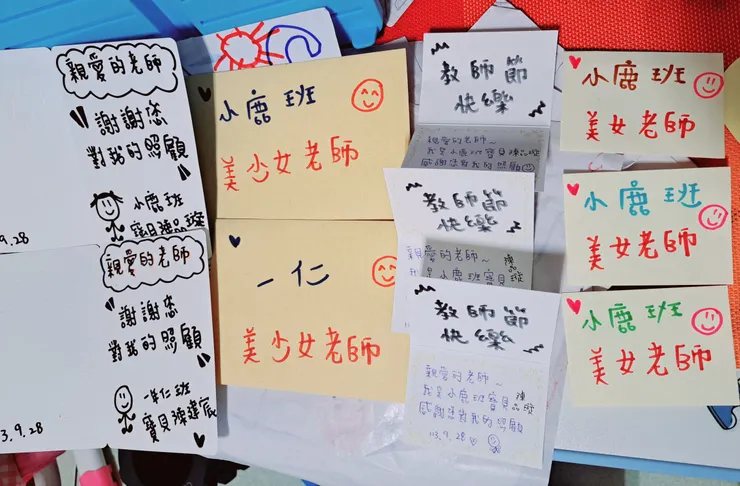 親愛的老師
謝謝您
對我的照顧
小鹿班
9.28
親愛的老師
謝謝您
對我的照顧
一年仁班
寶貝陳建宸
3.9.28
小鹿班
美少女老師
一仁
美少女老師
教師節
快樂
親愛的老師~
教師節
快樂
親愛的老師~
教師節
快樂
親愛的老師~
我是小鹿班寶貝陳品璇
感謝您對我的照顧
113.9.28
小鹿班
美女老師
小鹿班
美女老師
小鹿班
美女老師